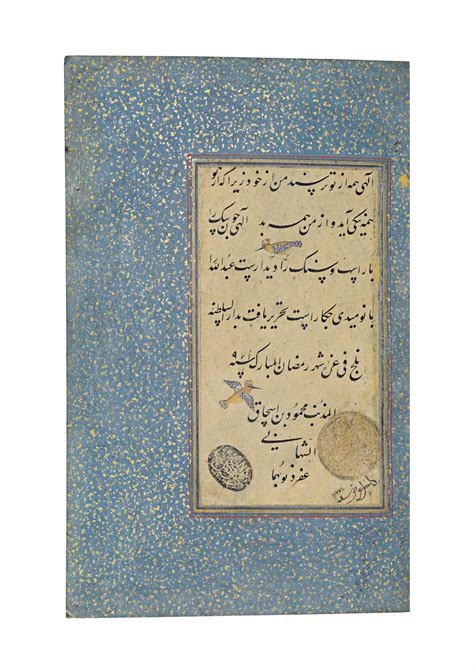 الهی همه از تو ترسند من از خود زیرا که از تو
همه نیکی آید و از من همه بد الهی چون سک را
بار است و سنک را دیدار است عبدالله را
با نومیدی چکار است تحریر یافت بدار السلطنه
بلخ فی غره شهر رمضان المبارک
المذنب محمود بن اسحاق
الشهابی
غفر ذنوبهما